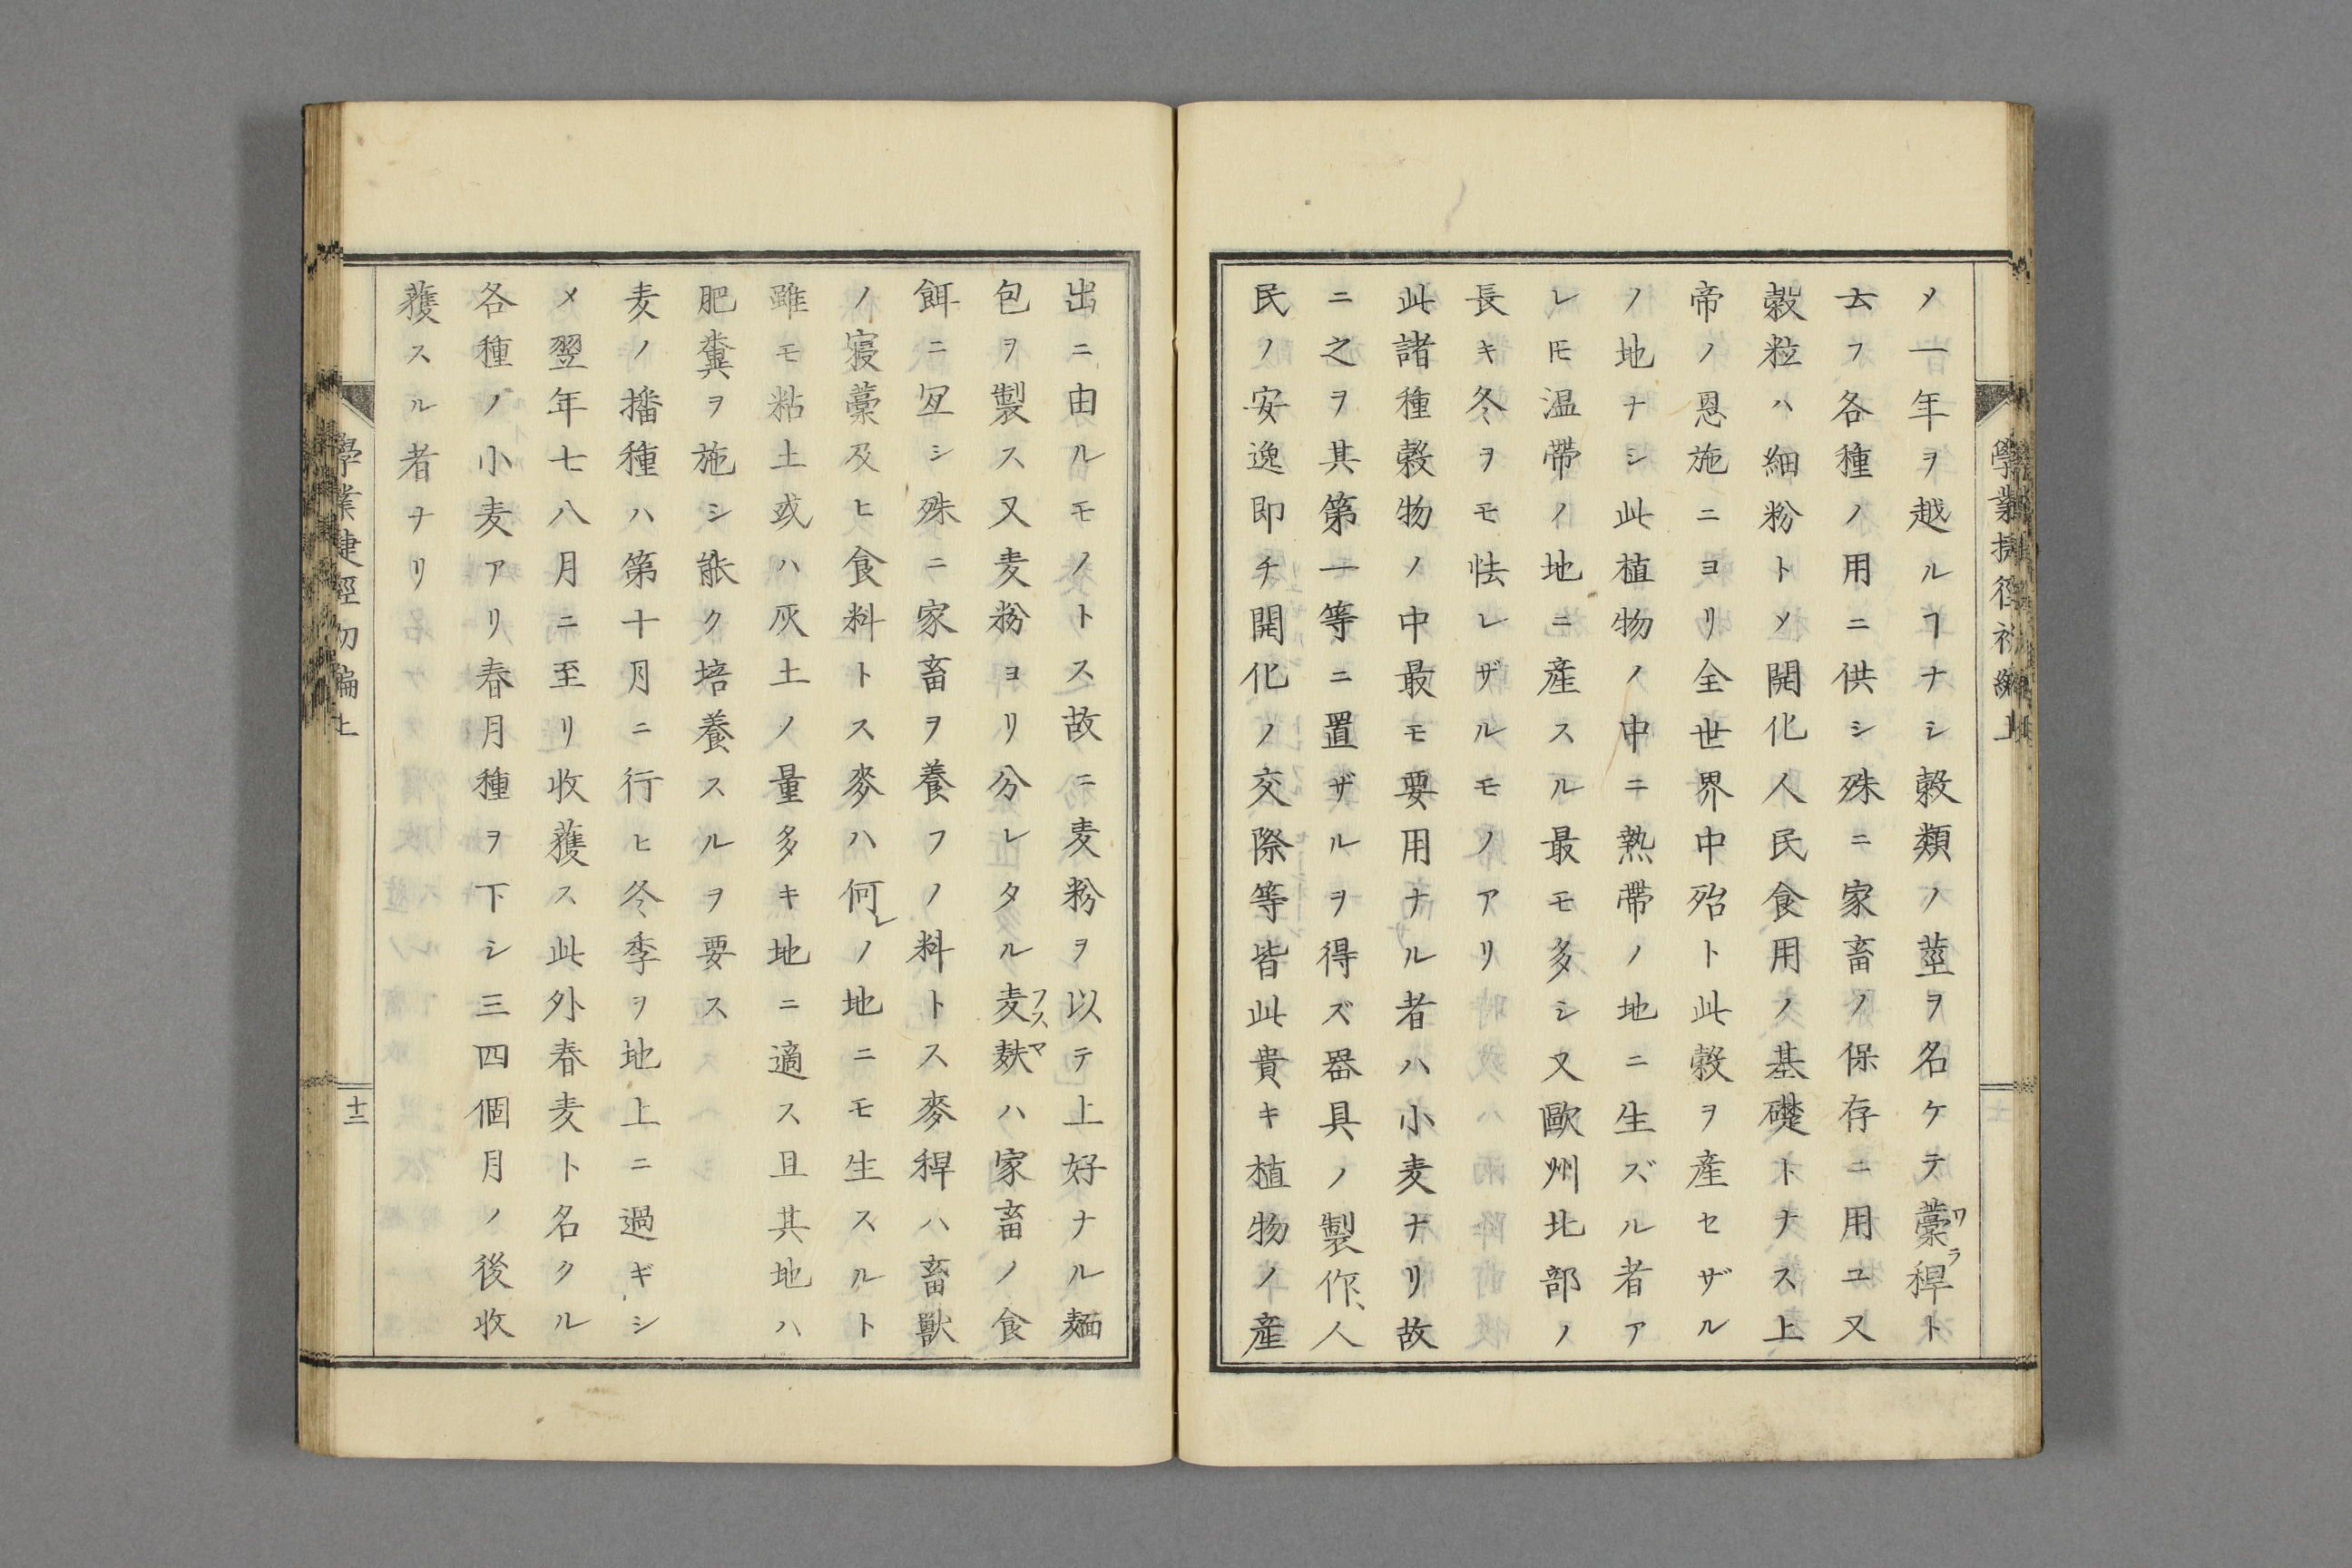 學業捷徑初編上
メ一年ヲ越ルヿナシ穀類ノ莖ヲ名ケテ藁稈ト
ワラ
云フ各種ノ用ニ供シ殊ニ家畜ノ保存ニ用ユ又
穀粒ハ細粉トメ開化人民食用ノ基礎トナス上
帝ノ恩施ニヨリ全世界中殆ト此穀ヲ産セザル
ノ地ナシ此植物ノ中ニ熱帶ノ地ニ生ズル者ア
レ𪜈温帶ノ地ニ産スル最モ多シ又歐州北部ノ
長キ冬ヲモ怯レザルモノアリ
此諸種穀物ノ中最モ要用ナル者ハ小麦ナリ故
ニ之ヲ其第一等ニ置ザルヲ得ズ器具ノ製作人
民ノ安逸即チ開化ノ交際等皆此貴キ植物ノ産
出ニ由ルモノトス故ニ麦粉ヲ以テ上好ナル麺
包ヲ製ス又麦粉ヨリ分レタル麦麸ハ家畜ノ食
フスマ
餌ニ宜シ殊ニ家畜ヲ養フノ料トス麥稈ハ畜獸
ノ寝藁及ヒ食料トス麥ハ何レノ地ニモ生スルト
雖モ粘土或ハ灰土ノ量多キ地ニ適ス且其地ハ
肥糞ヲ施シ能ク培養スルヲ要ス
麦ノ播種ハ第十月ニ行ヒ冬季ヲ地上ニ過ギシ
メ翌年七八月ニ至リ收蘒ス此外春麦ト名クル
各種ノ小麦アリ春月種ヲ下シ三四個月ノ後收
蘒スル者ナリ
學業捷徑初編上
十二